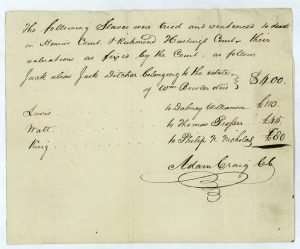 The following Slaves were tried and sentenced to death
in Henrico Court & Richmond Hustings Court – their
valuation as fixed by the Court, as follows
Jack alias Jack Ditcher belonging to the estate of
Wm Bowler decd } $400.
Lewis to Dabney Williamson £110.
Watt to Thomas Prosser £45.
King to Philip N. Nicholas £80
Adam Craig CC